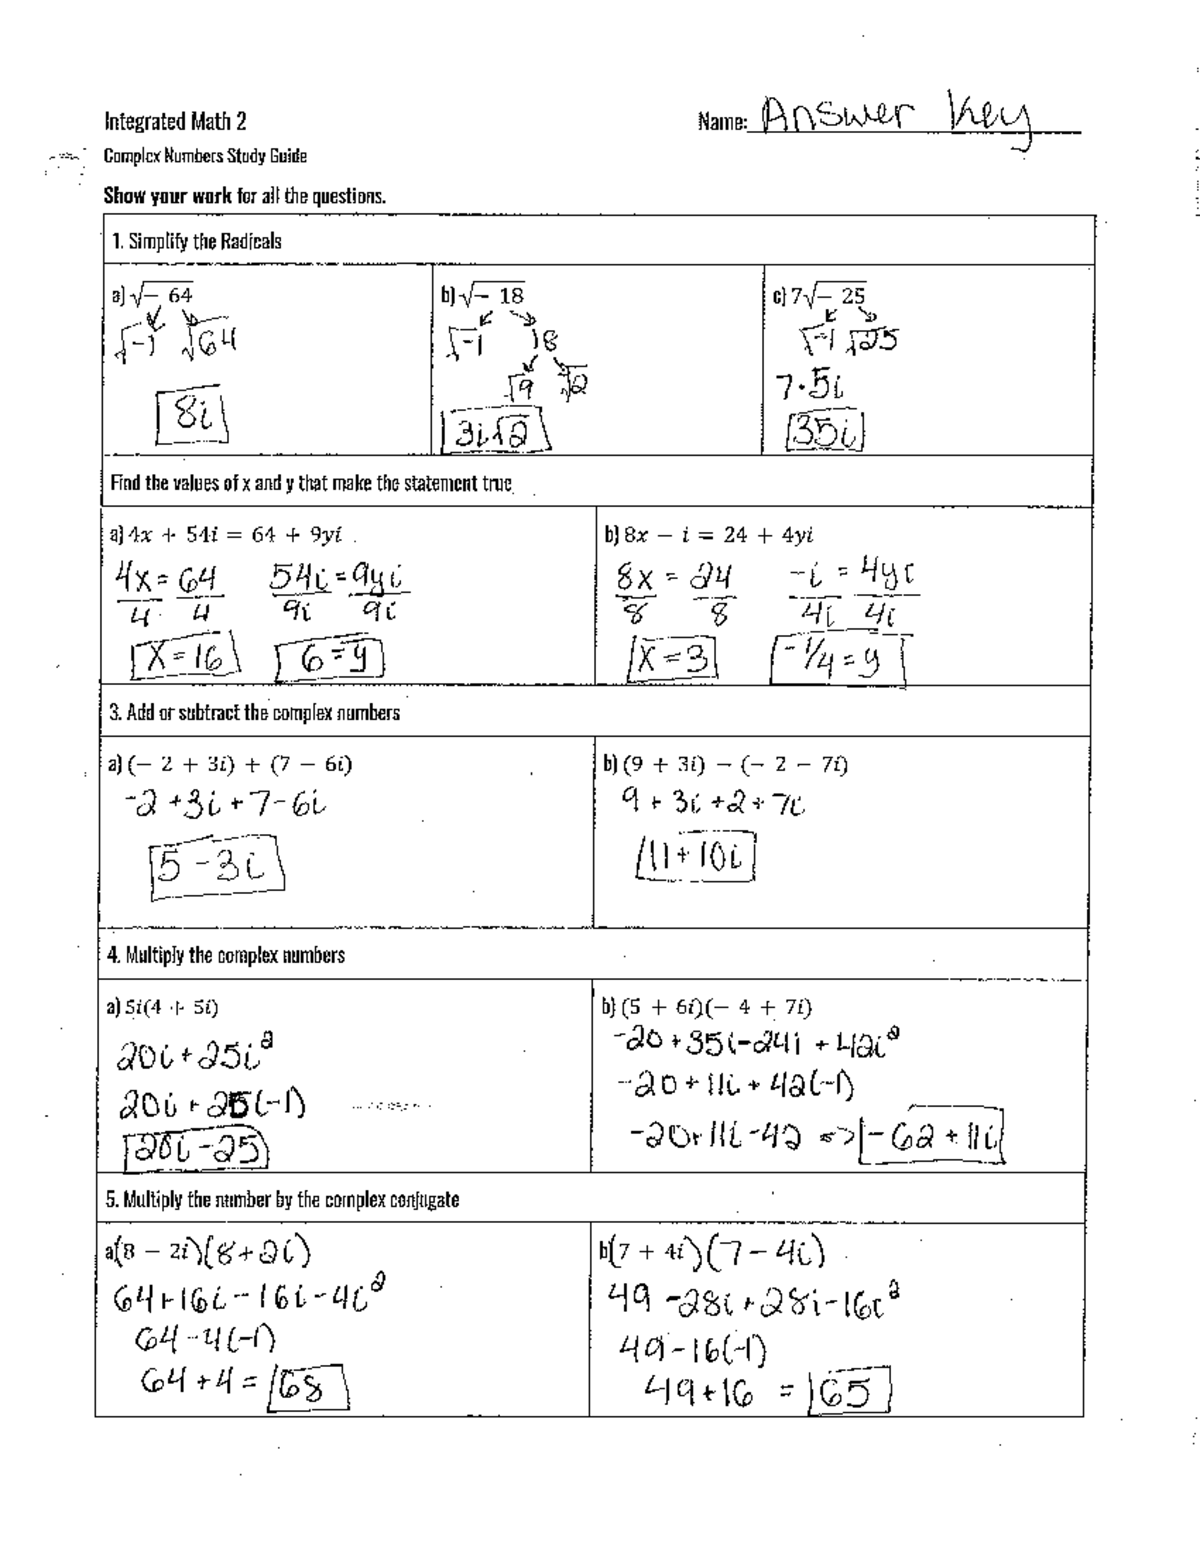 Integrated Math 2
Name: Answer Key
Complex Numbers Study Guide
Show your work for all the questions.
1. Simplify the Radicals
a) √− 64
√-1 √64
8i
b) √− 18
√-1 18
√9 √2
3i√2
c) 7√− 25
√-1 √25
7·5i
35i
Find the values of x and y that make the statement true.
a) 4x + 54i = 64 + 9yi
4x = 64 54i = 9yi
4 4 9i 9i
x = 16 6 = y
b) 8x − i = 24 + 4yi
8x = 24 -i = 4yi
8 8 4i 4i
x = 3 -1/4 = y
3. Add or subtract the complex numbers
a) (− 2 + 3i) + (7 − 6i)
-2 + 3i + 7 - 6i
5 - 3i
b) (9 + 3i) − (− 2 − 7i)
9 + 3i + 2 + 7i
11 + 10i
4. Multiply the complex numbers
a) 5i(4 + 5i)
20i + 25i²
20i + 25(-1)
20i - 25
b) (5 + 6i)(− 4 + 7i)
-20 + 35i - 24i + 42i²
-20 + 11i + 42(-1)
-20 + 11i - 42 => -62 + 11i
5. Multiply the number by the complex conjugate
a(8 − 2i)(8 + 2i)
64 + 16i - 16i - 4i²
64 - 4(-1)
64 + 4 = 68
b(7 + 4i)(7 - 4i)
49 - 28i + 28i - 16i²
49 - 16(-1)
49 + 16 = 65